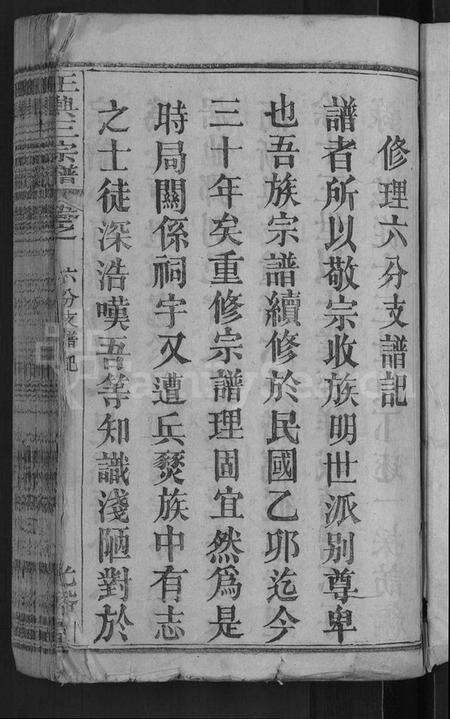 修理六分支譜記
譜者所以敬宗收族明世派別尊卑
也吾族宗譜續修於民國乙卯迄今
三十年矣重修宗譜理固宜然爲是
時局關係祠宇又遭兵燹族中有志
之士徒深浩嘆吾等知識淺陋對於
宗譜
六分支譜記